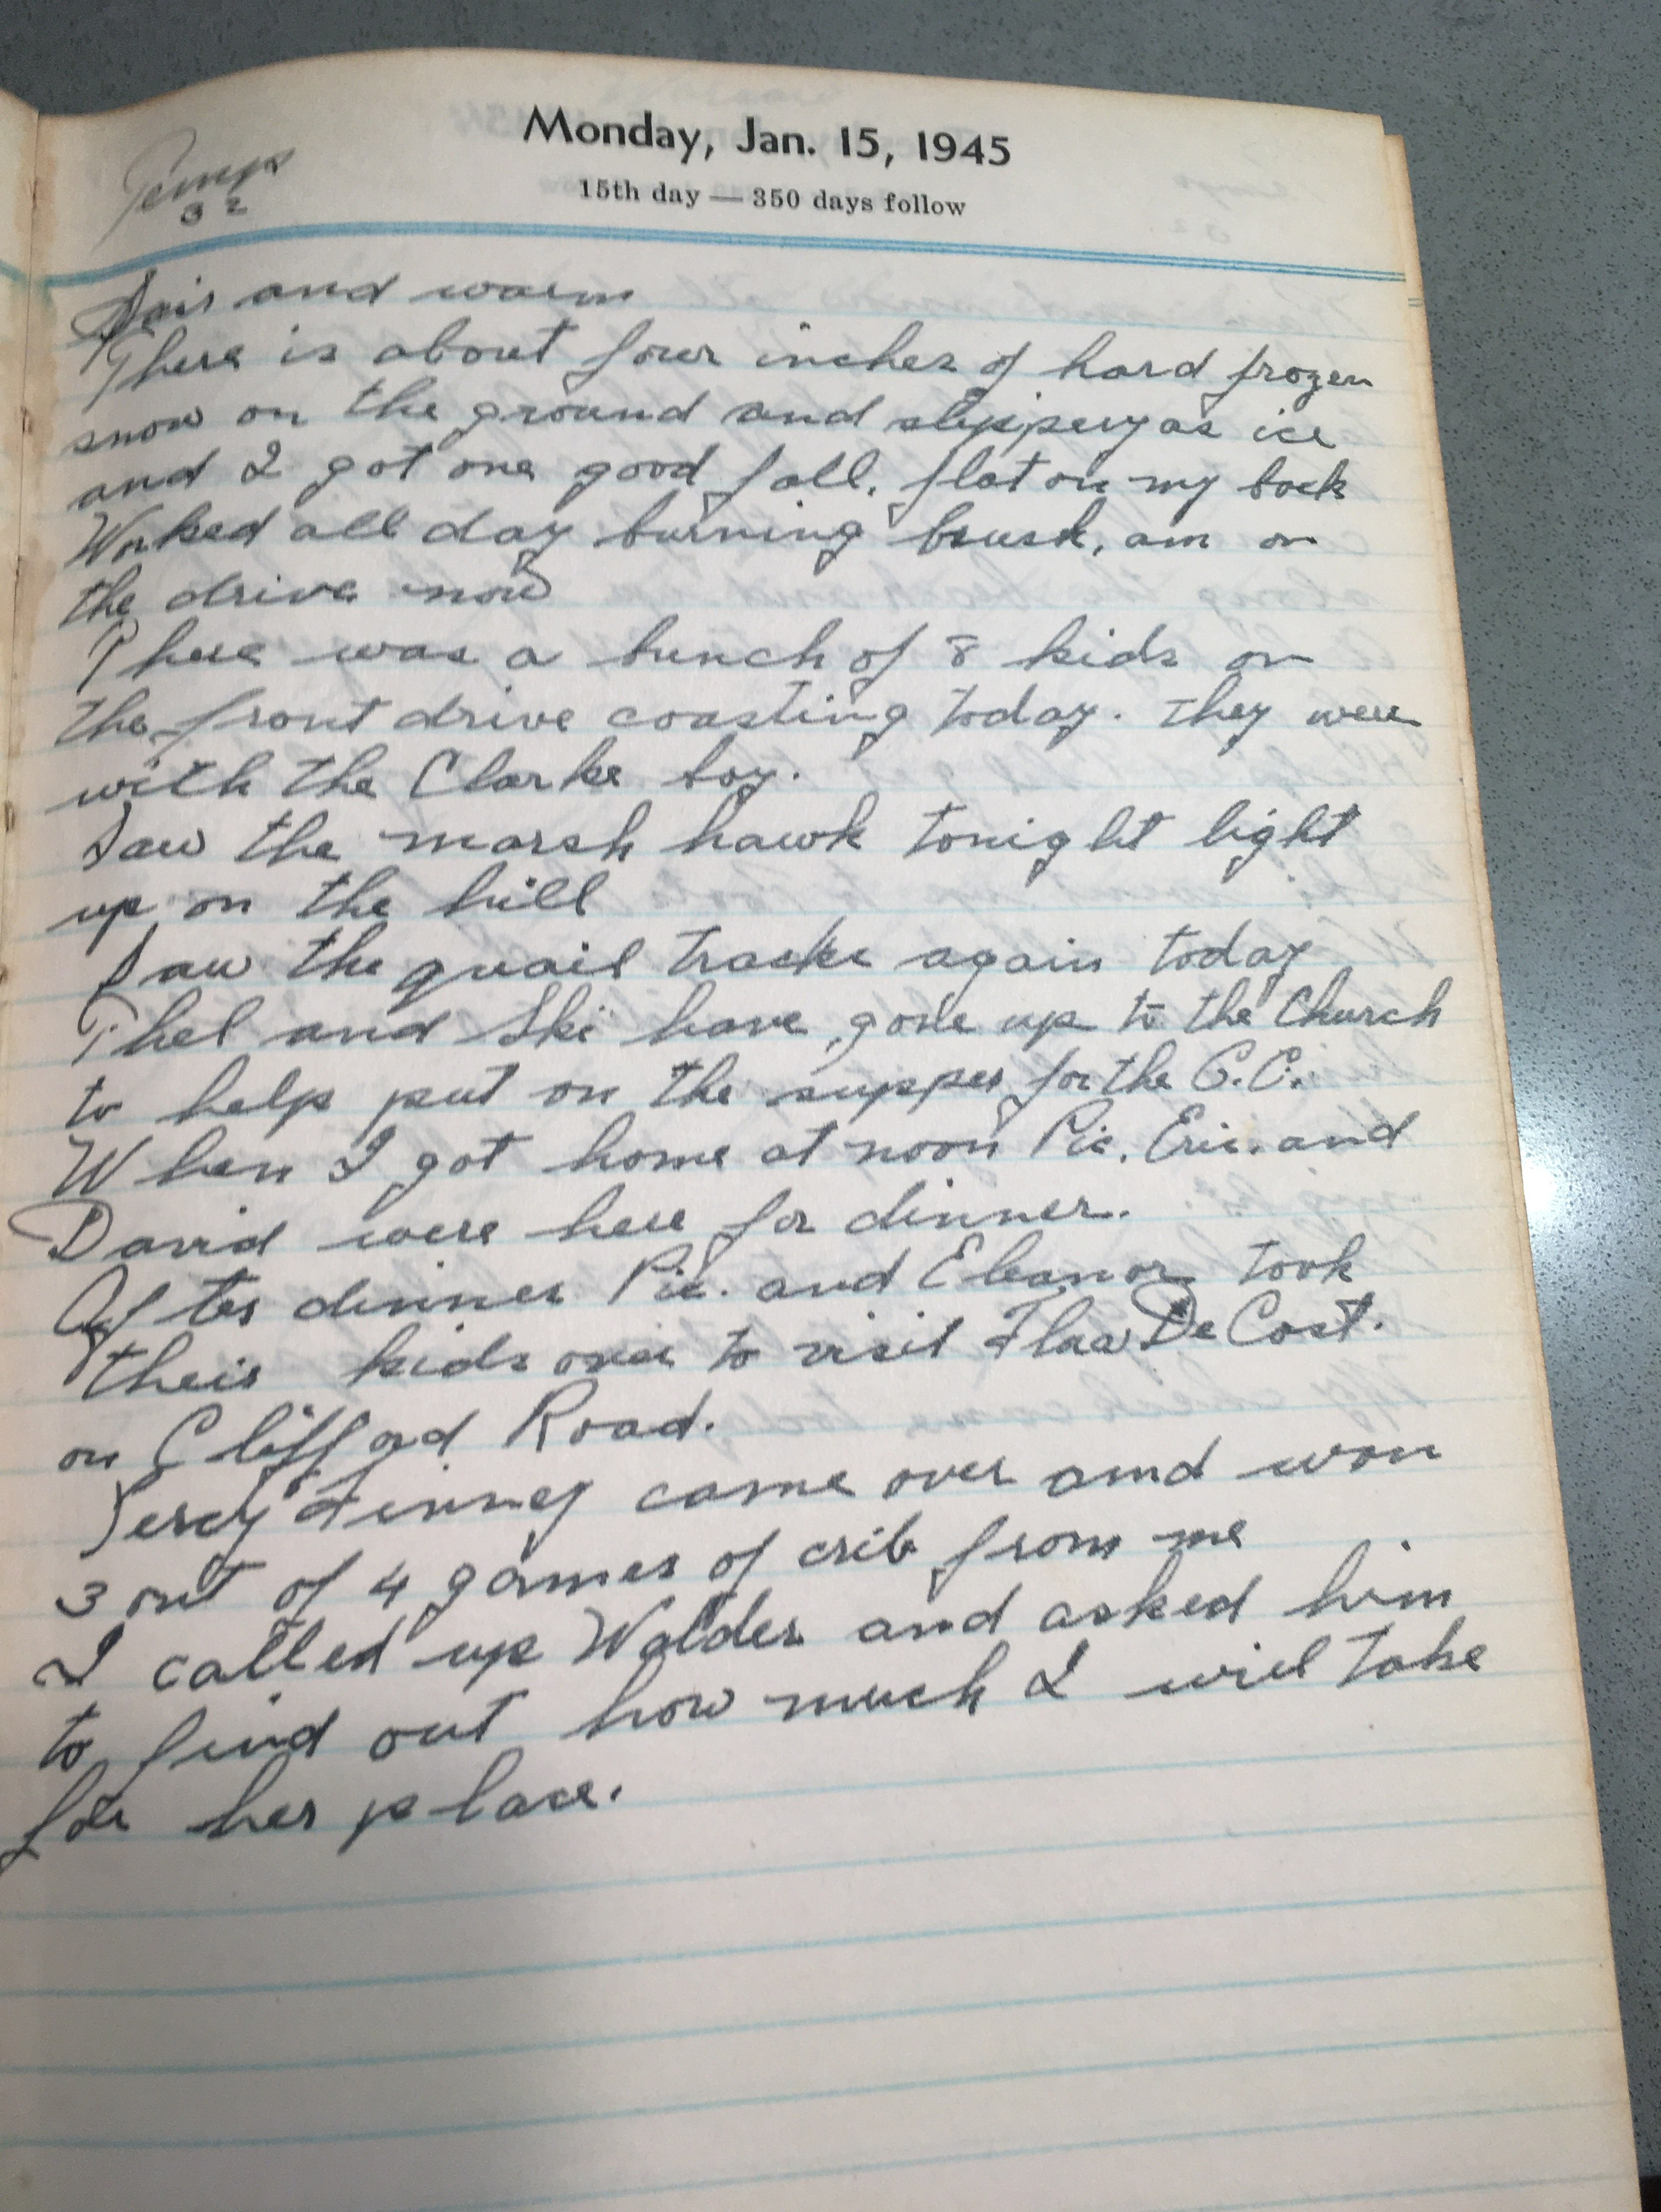 Monday, Jan. 15, 1945
15th day — 350 days follow
Temp
32
Fair and warm
There is about four inches of hard frozen
snow on the ground and slippery as ice
and I got one good fall, flat on my back
Worked all day burning brush, am on
the drive now
There was a bunch of 8 kids on
the front drive coasting today. They were
with the Clarke boy.
Saw the marsh hawk tonight light
up on the hill
Saw the quail tracks again today
Thel and Ski have gone up to the Church
to help put on the supper for the C.C.
When I got home at noon Pic. Eric. and
David were here for dinner.
After dinner Pic. and Eleanor took
their kids over to visit DeCost.
on Clifford Road.
Percy Finney came over and won
3 out of 4 games of crib from me
I called up Walder and asked him
to find out how much I will take
for her place.